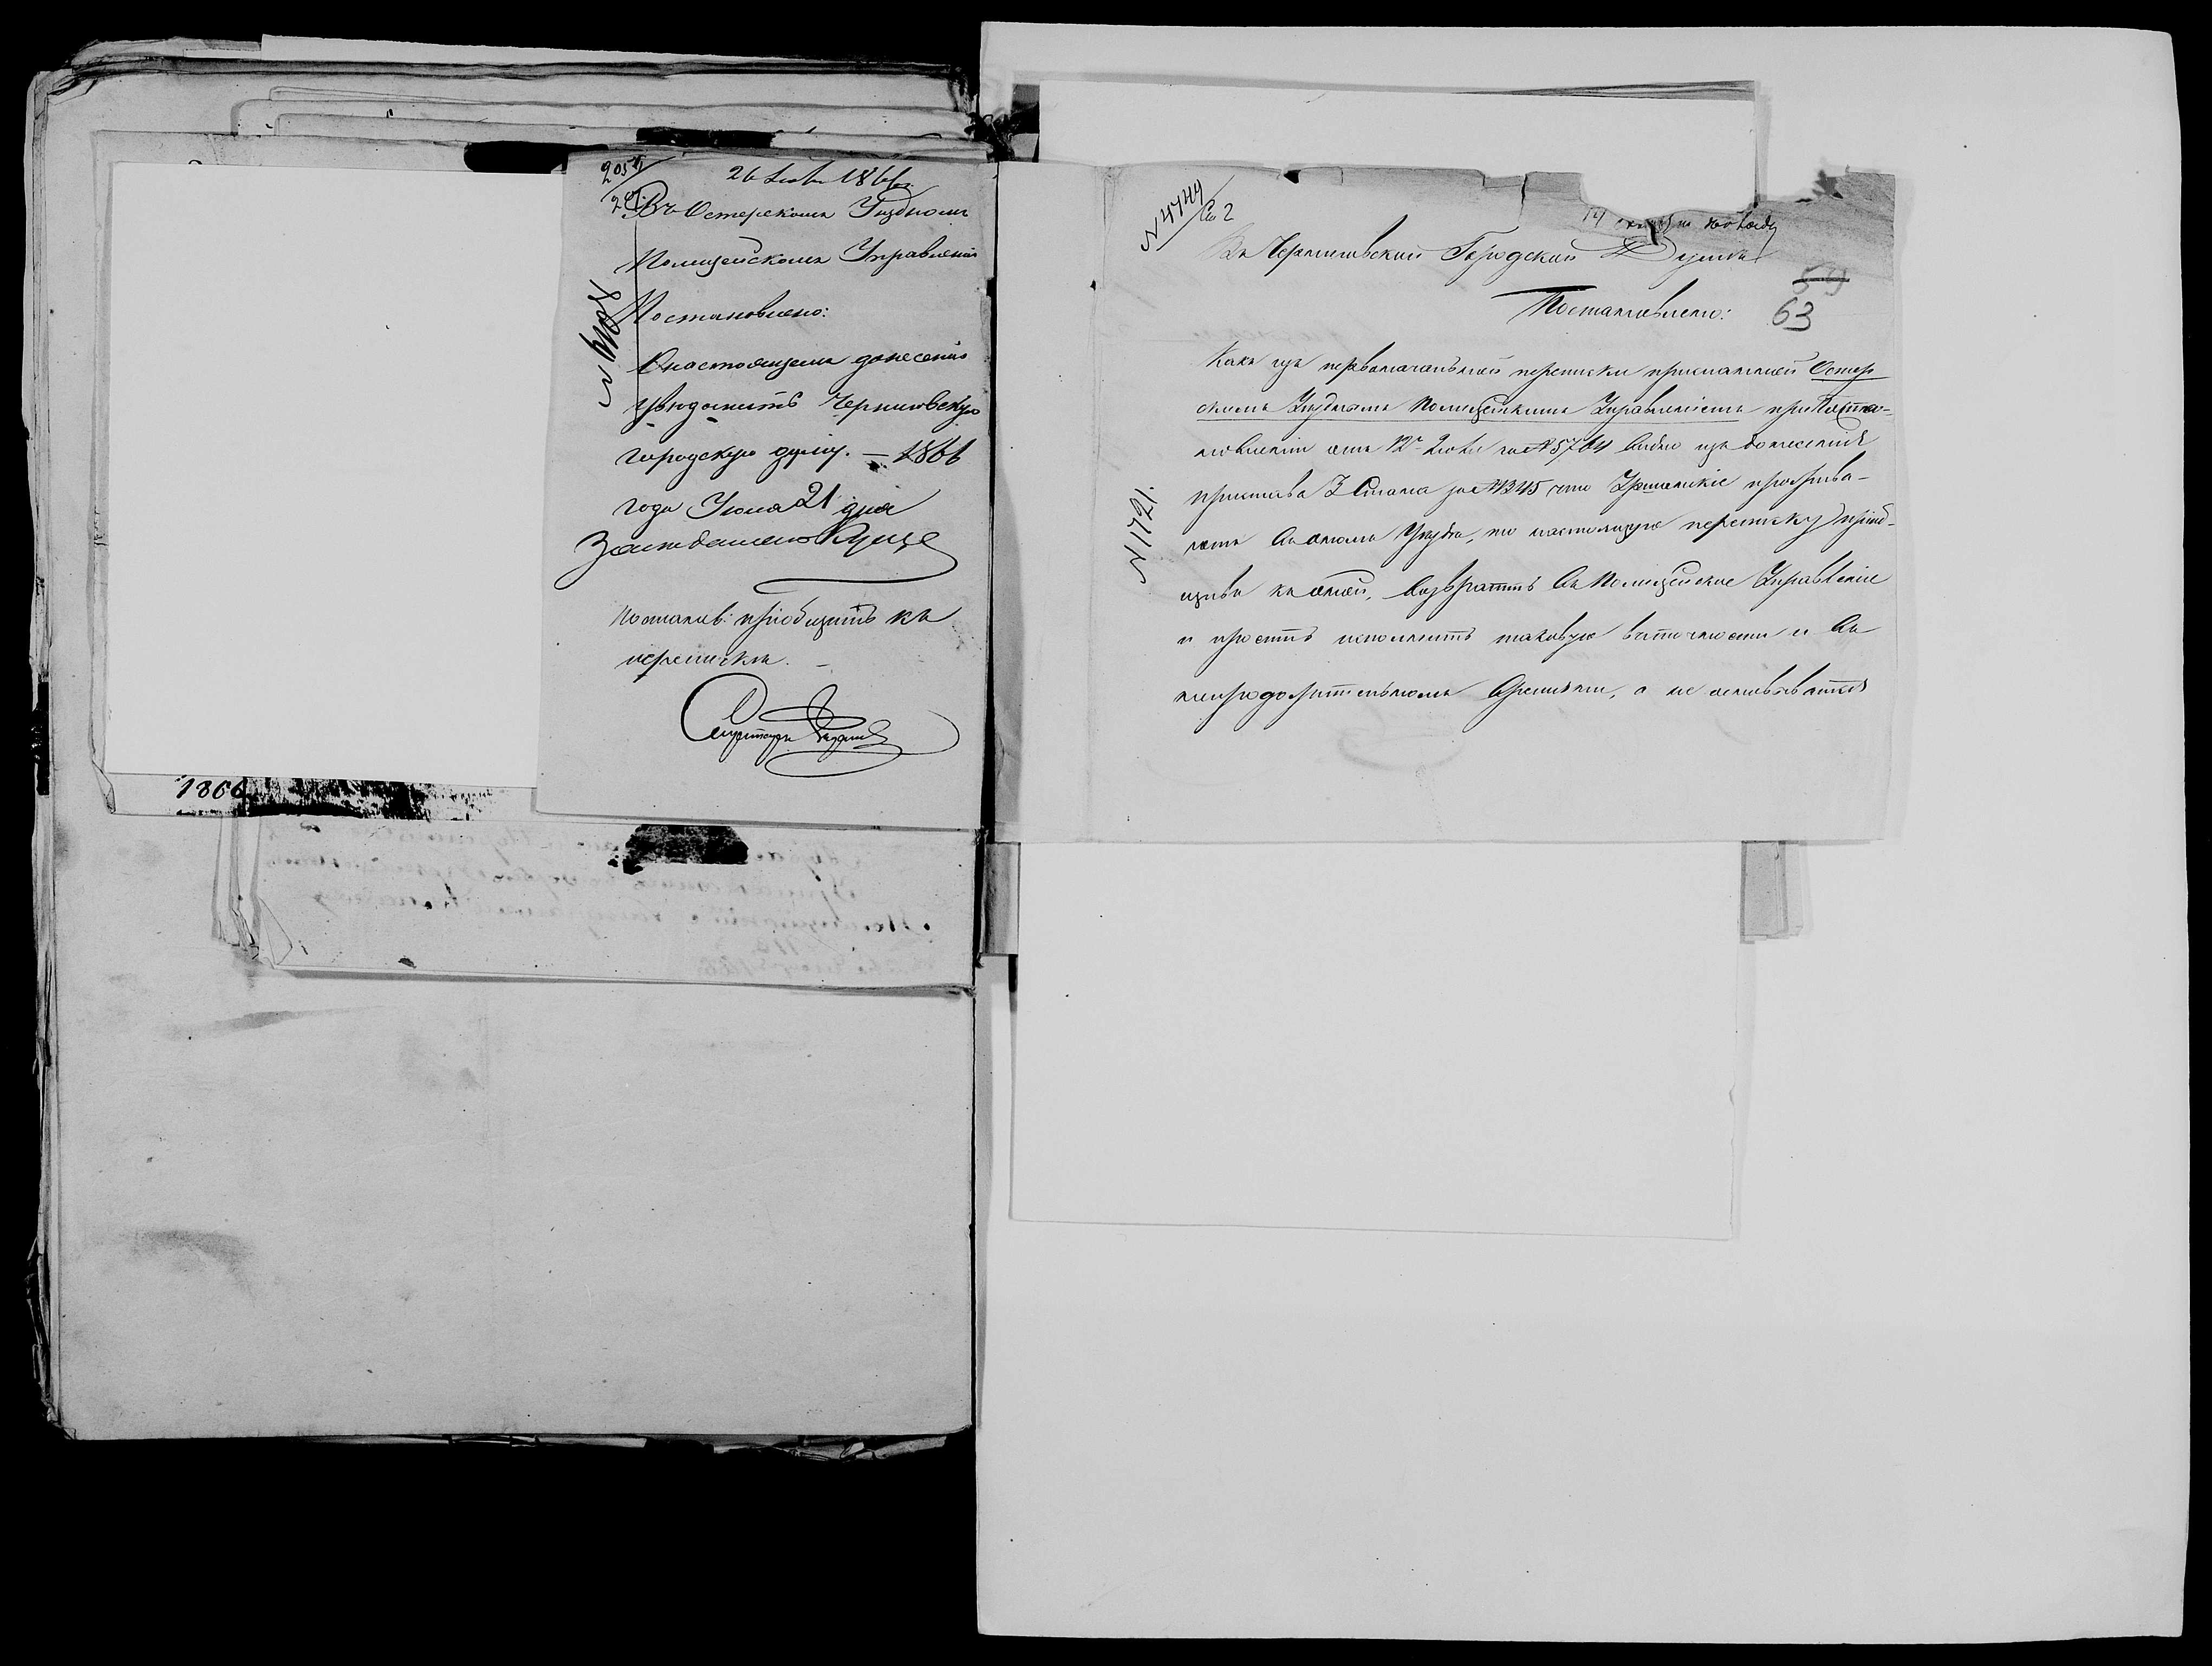 2057
26 Июня 1866 г.
Въ Остерскомъ Уѣздномъ
Полицейскомъ Управленіи
Постановлено:
О настоящемъ донесеніи
увѣдомить Черниговскую
городскую думу. — 1866
года Июня 21 дня
Постанов: пріобщить къ
перепискѣ. —
1866
№ 4749
14
Въ Черниговской Городской Думѣ
59
Постановлено: 63
Какъ изъ первоначальной переписки присланной Остер
скимъ Уѣзднымъ Полицейскимъ Управленіемъ при Поста-
новленіи отъ 12 Июня за № 5764 видно изъ донесенія
пристава 3 Стана за № 1345 что прожива-
ютъ въ ономъ Уѣздѣ, то настоящую переписку пріоб-
щивъ къ оной, возвратить въ Полицейское Управленіе
и просить исполнить таковую въ точности и въ
непродолжительномъ времени, а не основываться
№ 1721.